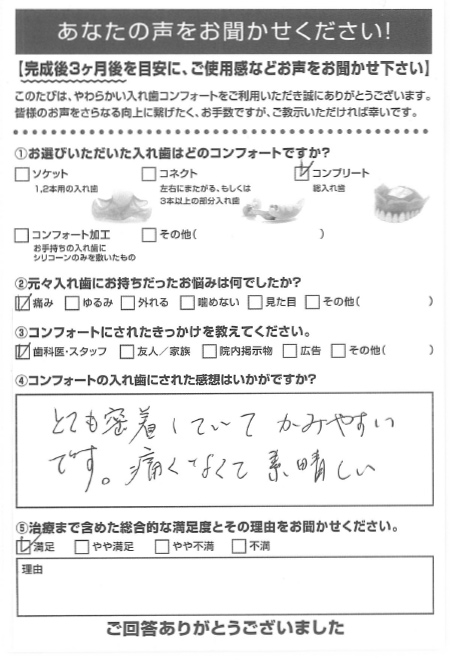 あなたの声をお聞かせください!
【完成後3ヶ月後を目安に、ご使用感などお声をお聞かせ下さい】
このたびは、やわらかい入れ歯コンフォートをご利用いただき誠にありがとうございます。
皆様のお声をさらなる向上に繋げたく、お手数ですが、ご教示いただければ幸いです。
①お選びいただいた入れ歯はどのコンフォートですか?
□ソケット □コネクト ☑コンプリート
1,2本用の入れ歯 左右にまたがる、もしくは 総入れ歯
3本以上の部分入れ歯
□コンフォート加工 □その他( )
お手持ちの入れ歯に
シリコーンのみを敷いたもの
②元々入れ歯にお持ちだったお悩みは何でしたか?
☑痛み □ゆるみ □外れる □噛めない □見た目 □その他( )
③コンフォートにされたきっかけを教えてください。
☑歯科医・スタッフ □友人/家族 □院内掲示物 □広告 □その他( )
④コンフォートの入れ歯にされた感想はいかがですか?
とても密着していて かみやすい
です。痛くなくて 素晴しい
⑤治療まで含めた総合的な満足度とその理由をお聞かせください。
☑満足 □やや満足 □やや不満 □不満
理由
ご回答ありがとうございました